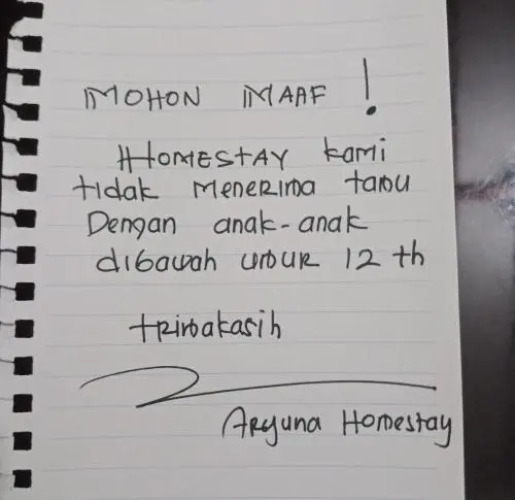 MOHON MAAF !
HOMEStAY kami
tidak Menerima tamu
Dengan anak-anak
dibawah umur 12 th
trimakasih
Aryuna Homestay